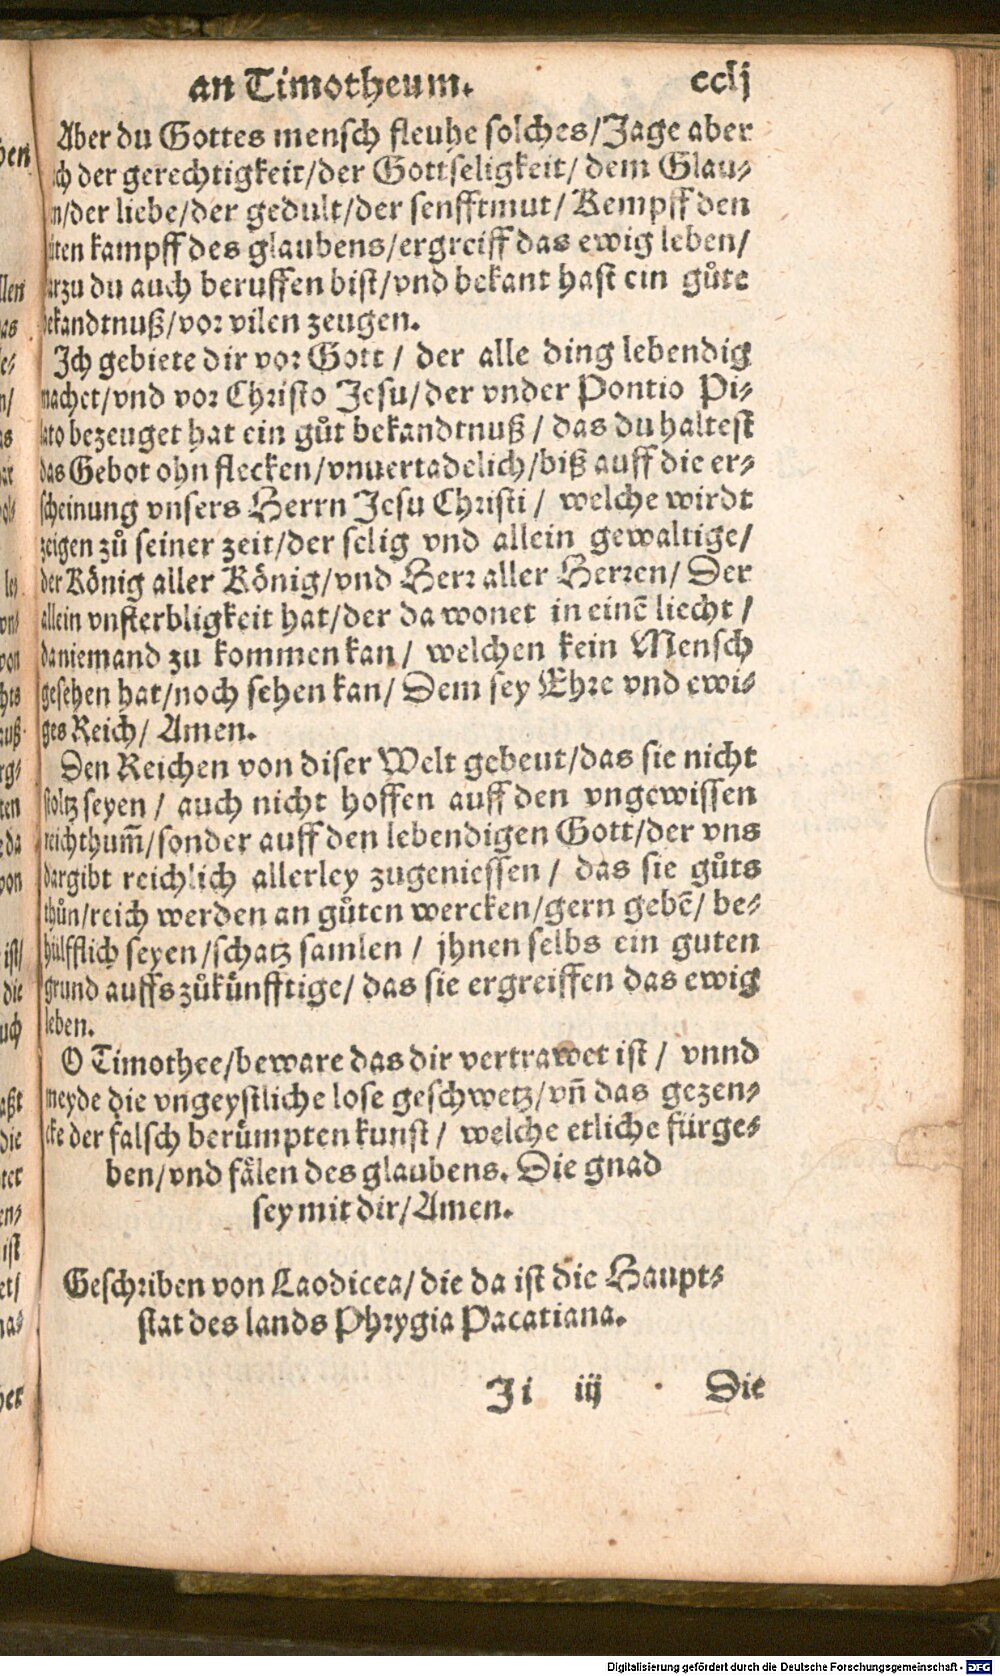 an Timotheum. cclj
Aber du Gottes mensch fleuhe solches/Jage aber
ch der gerechtigkeit/der Gottseligkeit/ dem Glau-
n/der liebe/der gedult/der senfftmut/ Kempff den
ten kampff des glaubens/ergreiff das ewig leben/
rzu du auch beruffen bist/vnd bekant hast ein gůte
bekandtnuß/vor vilen zeugen.
Ich gebiete dir vor Gott / der alle ding lebendig
machet/vnd vor Christo Jesu/der vnder Pontio Pi-
lato bezeuget hat ein gůt bekandtnuß / das du haltest
das Gebot ohn flecken/vnuertadelich/biß auff die er-
scheinung vnsers Herrn Jesu Christi / welche wirdt
zeigen zů seiner zeit/der selig vnd allein gewaltige/
der König aller König/vnd Herr aller Herren/ Der
allein vnsterbligkeit hat/der da wonet in einē liecht /
da niemand zu kommen kan / welchen kein Mensch
gesehen hat/noch sehen kan/ Dem sey Ehre vnd ewi-
ges Reich/ Amen.
Den Reichen von diser Welt gebeut/das sie nicht
stoltz seyen / auch nicht hoffen auff den vngewissen
reichthum̄/sonder auff den lebendigen Gott/der vns
dargibt reichlich allerley zugeniessen / das sie gůts
thůn/reich werden an gůten wercken/gern gebē/ be-
hülfflich seyen/schatz samlen / jhnen selbs ein guten
grund auffs zůkünfftige/ das sie ergreiffen das ewig
leben.
O Timothee/beware das dir vertrawet ist / vnnd
meyde die vngeystliche lose geschwetz/vn̄ das gezen-
cke der falsch berümpten kunst / welche etliche fürge-
ben/vnd fälen des glaubens. Die gnad
sey mit dir/Amen.
Geschriben von Laodicea/die da ist die Haupt-
stat des lands Phrygia Pacatiana.
Ji iij Die
Digitalisierung gefördert durch die Deutsche Forschungsgemeinschaft - DFG